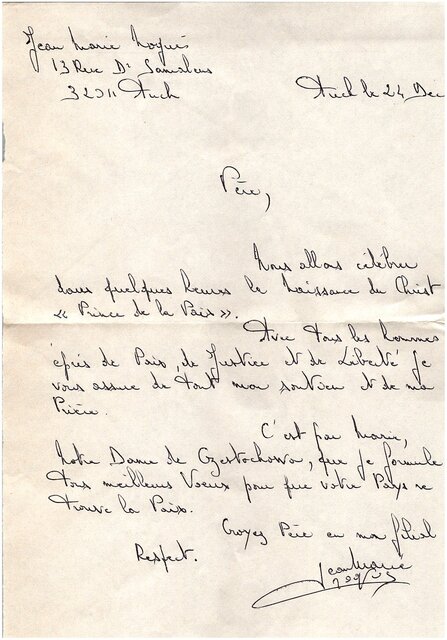 Jean Marie Noguès
13 Rue Dr Samalens
32011 Auch
Auch le 24 Dec
Père,
Nous allons célébrer
dans quelques heures la Naissance du Christ
« Prince de la Paix ».
Avec tous les hommes
épris de Paix, de Justice et de Liberté je
vous assure de tout mon soutien et de ma
Prière.
C'est par Marie,
Notre Dame de Czestochowa, que je formule
tous meilleurs Voeux pour que votre Pays re
trouve la Paix.
Croyez Père en mon filial
Respect.
Jean Marie
Noguès